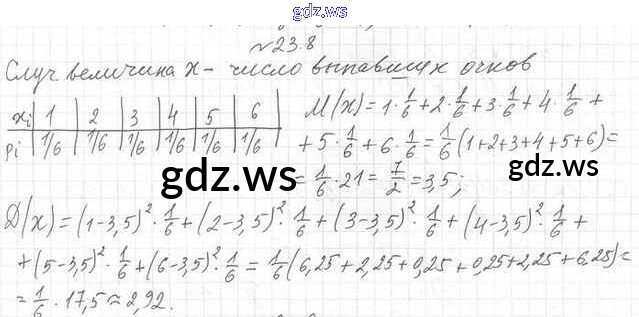 gdz.ws
№23.8
Случ величина X – число выпавших очков
xi | 1 | 2 | 3 | 4 | 5 | 6
pi | 1/6 | 1/6 | 1/6 | 1/6 | 1/6 | 1/6
M(X) = 1·1/6 + 2·1/6 + 3·1/6 + 4·1/6 +
+ 5·1/6 + 6·1/6 = 1/6(1+2+3+4+5+6) =
= 1/6·21 = 7/2 = 3,5;
gdz.ws
gdz.ws
D(X) = (1-3,5)²·1/6 + (2-3,5)²·1/6 + (3-3,5)²·1/6 + (4-3,5)²·1/6 +
+ (5-3,5)²·1/6 + (6-3,5)²·1/6 = 1/6(6,25+2,25+0,25+0,25+2,25+6,25) =
= 1/6·17,5 ≈ 2,92.
gdz.ws